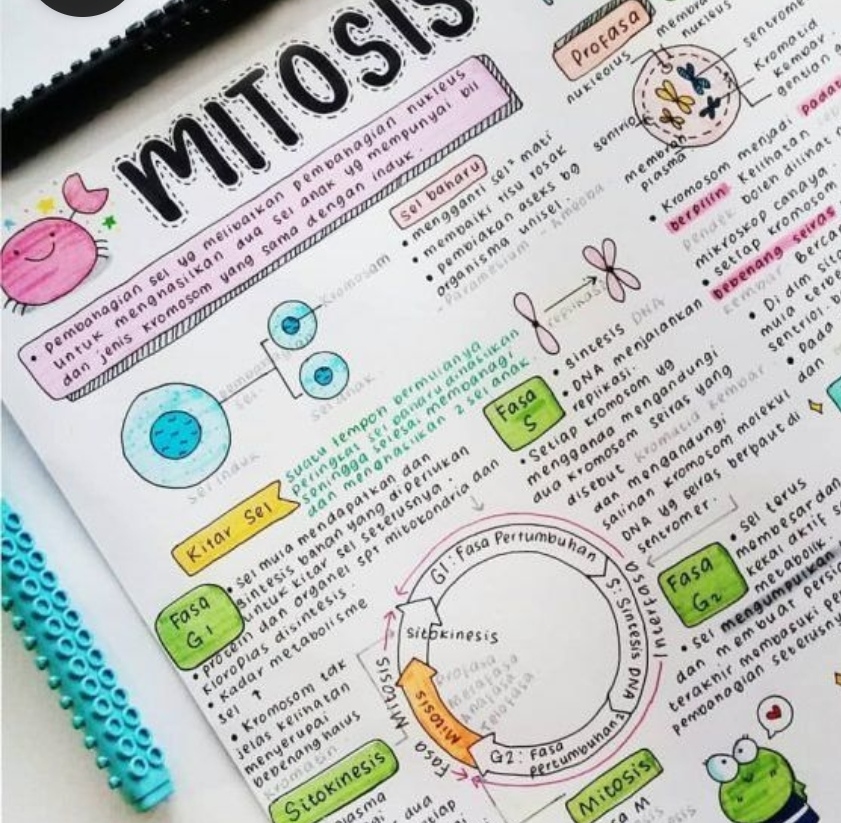 MITOSIS
• Pembahagian sel yg melibatkan pembahagian nukleus
untuk menghasilkan dua sel anak yg mempunyai bil
dan jenis kromosom yang sama dengan induk.
sel baharu
• mengganti sel² mati
• membaiki tisu rosak
• pembiakan aseks bg
organisma unisel.
- Paramesium - Amoeba
Kromosom
pembahagian
sel.
sel anak.
sel induk
replikasi
suatu tempoh bermulanya
peringkat sel baharu dihasilkan
sehingga selesai membahagi
dan menghasilkan 2 sel anak.
Kitar Sel
Fasa
G1
• sel mula mendapatkan dan
sintesis bahan yang diperlukan
untuk kitar sel seterusnya.
• protein dan organel spt mitokondria dan
kloroplas disintesis.
• Kadar metabolisme
sel ↑
• Kromosom tak
jelas kelihatan
menyerupai
bebenang halus
Kromatin
Fasa
S
• sintesis DNA
• DNA menjalankan
replikasi.
• Setiap kromosom yg
mengganda mengandungi
dua kromosom seiras yang
disebut kromatid kembar
dan mengandungi
salinan kromosom molekul
DNA yg seiras berpaut di
sentromer.
Fasa
G2
• sel terus
membesar dan
kekal aktif s
metabolik.
• sel mengumpulkan
dan membuat persia
terakhir membasuki pe
pembahagian seterusny
G1: Fasa Pertumbuhan
S: Sintesis DNA
G2: Fasa
pertumbuhan2
Interfasa
Sitokinesis
Mitosis
Fasa Mitosis
Profasa
Metafasa
Anafasa
Telofasa
Sitokinesis
Mitosis
Profasa
membra
nukleus
nukleolus
sentrome
Kromatid
kembar.
sentrio
membran
plasma
• Kromosom menjadi padat
berpilin. Kelihatan
pendek boleh dilihat
mikroskop cahaya.
• setiap kromosom
bebenang seiras
kembar Berca
• Di dlm sito
mula terbe
sentriol b
• Pada
dan